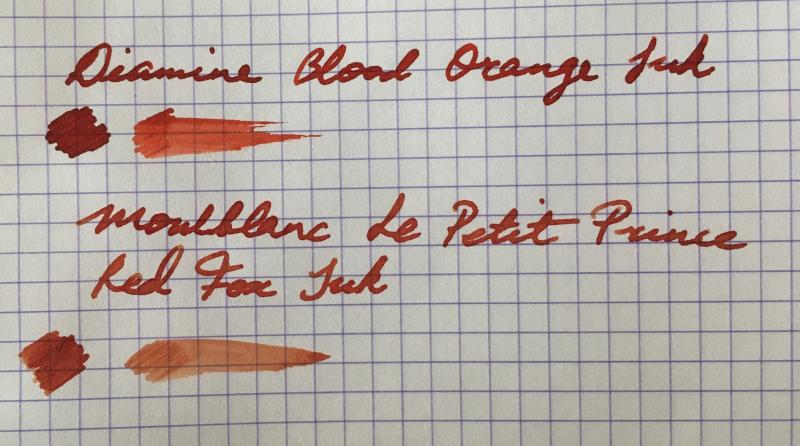 Diamine Blood Orange Ink
Montblanc Le Petit Prince
Red Fox Ink